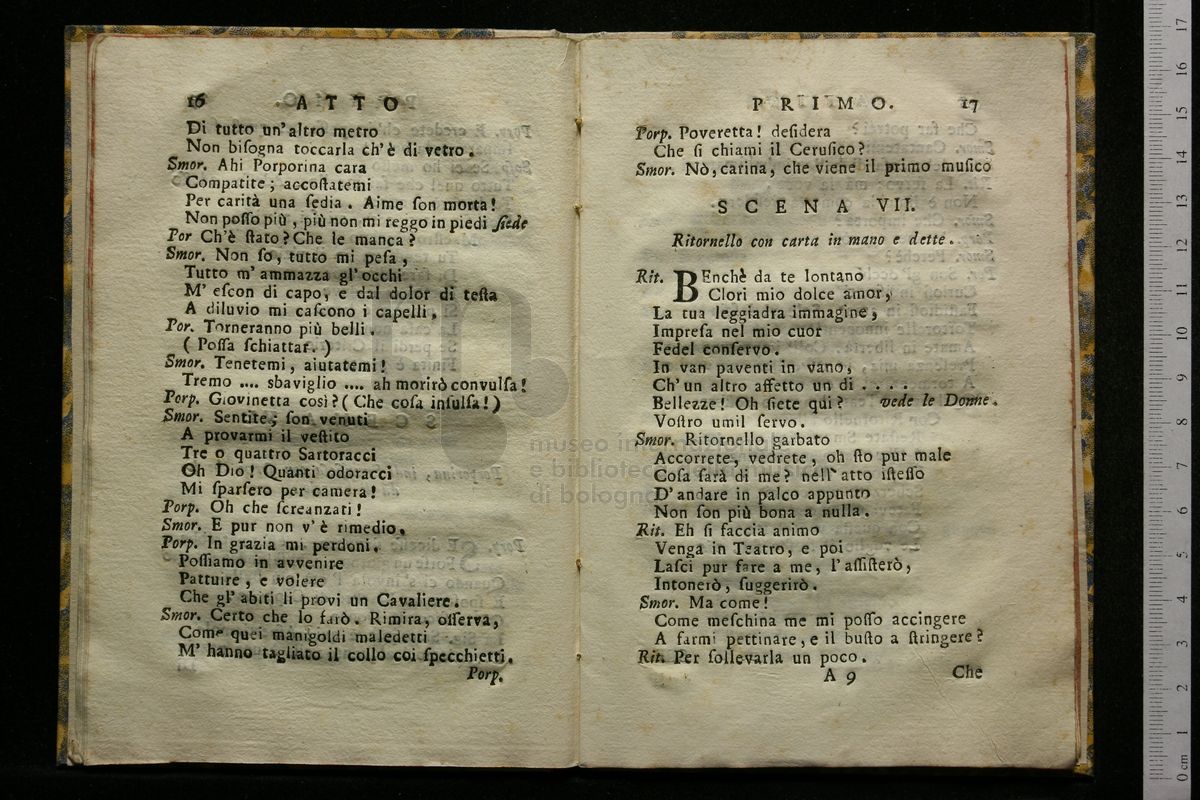 16 ATTO
Di tutto un'altro metro
Non biſogna toccarla ch'è di vetro.
Smor. Ahi Porporina cara
Compatite; accoſtatemi
Per carità una ſedia. Aime ſon morta!
Non poſſo più, più non mi reggo in piedi ſiede
Por Ch'è ſtato? Che le manca?
Smor. Non ſo, tutto mi peſa,
Tutto m'ammazza gl'occhi
M'eſcon di capo, e dal dolor di teſta
A diluvio mi caſcono i capelli.
Por. Torneranno più belli.
(Poſſa ſchiattar.)
Smor. Tenetemi, aiutatemi!
Tremo .... sbaviglio .... ah morirò convulſa!
Porp. Giovinetta così? (Che coſa inſulſa!)
Smor. Sentite; ſon venuti
A provarmi il veſtito
Tre o quattro Sartoracci
Oh Dio! Quanti odoracci
Mi ſparſero per camera!
Porp. Oh che ſcreanzati!
Smor. E pur non v'è rimedio.
Porp. In grazia mi perdoni.
Poſſiamo in avvenire
Pattuire, e volere
Che gl'abiti li provi un Cavaliere.
Smor. Certo che lo farò. Rimira, oſſerva,
Come quei manigoldi maledetti
M'hanno tagliato il collo coi ſpecchietti.
Porp.
PRIMO. 17
Porp. Poveretta! deſidera
Che ſi chiami il Ceruſico?
Smor. Nò, carina, che viene il primo muſico
SCENA VII.
Ritornello con carta in mano e dette.
Rit. BEnchè da te lontano
Clori mio dolce amor,
La tua leggiadra immagine,
Impreſa nel mio cuor
Fedel conſervo.
In van paventi in vano,
Ch'un altro affetto un di ....
Bellezze! Oh ſiete qui? vede le Donne.
Voſtro umil ſervo.
Smor. Ritornello garbato
Accorrete, vedrete, oh ſto pur male
Coſa ſarà di me? nell'atto iſteſſo
D'andare in palco appunto
Non ſon più bona a nulla.
Rit. Eh ſi faccia animo
Venga in Teatro, e poi
Laſci pur fare a me, l'aſſiſterò,
Intonerò, ſuggerirò.
Smor. Ma come!
Come meſchina me mi poſſo accingere
A farmi pettinare, e il buſto a ſtringere?
Rit. Per ſollevarla un poco.
A 9 Che
museo in
e bibliotec
di bologn
0 cm 1 2 3 4 5 6 7 8 9 10 11 12 13 14 15 16 17